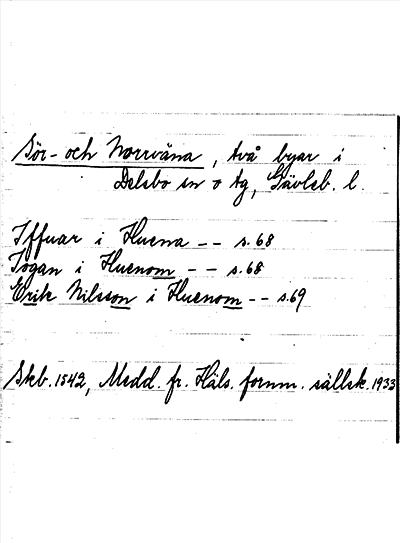 Sör- och Norrväna, två byar i
Delsbo sn o tg, Gävleb. l.
Iffuar i Huena -- s. 68
Togan i Huenom -- s. 68
Erik Nilsson i Huenom -- s. 69
Skb. 1542, Medd. fr. Häls. fornm. sällsk. 1933